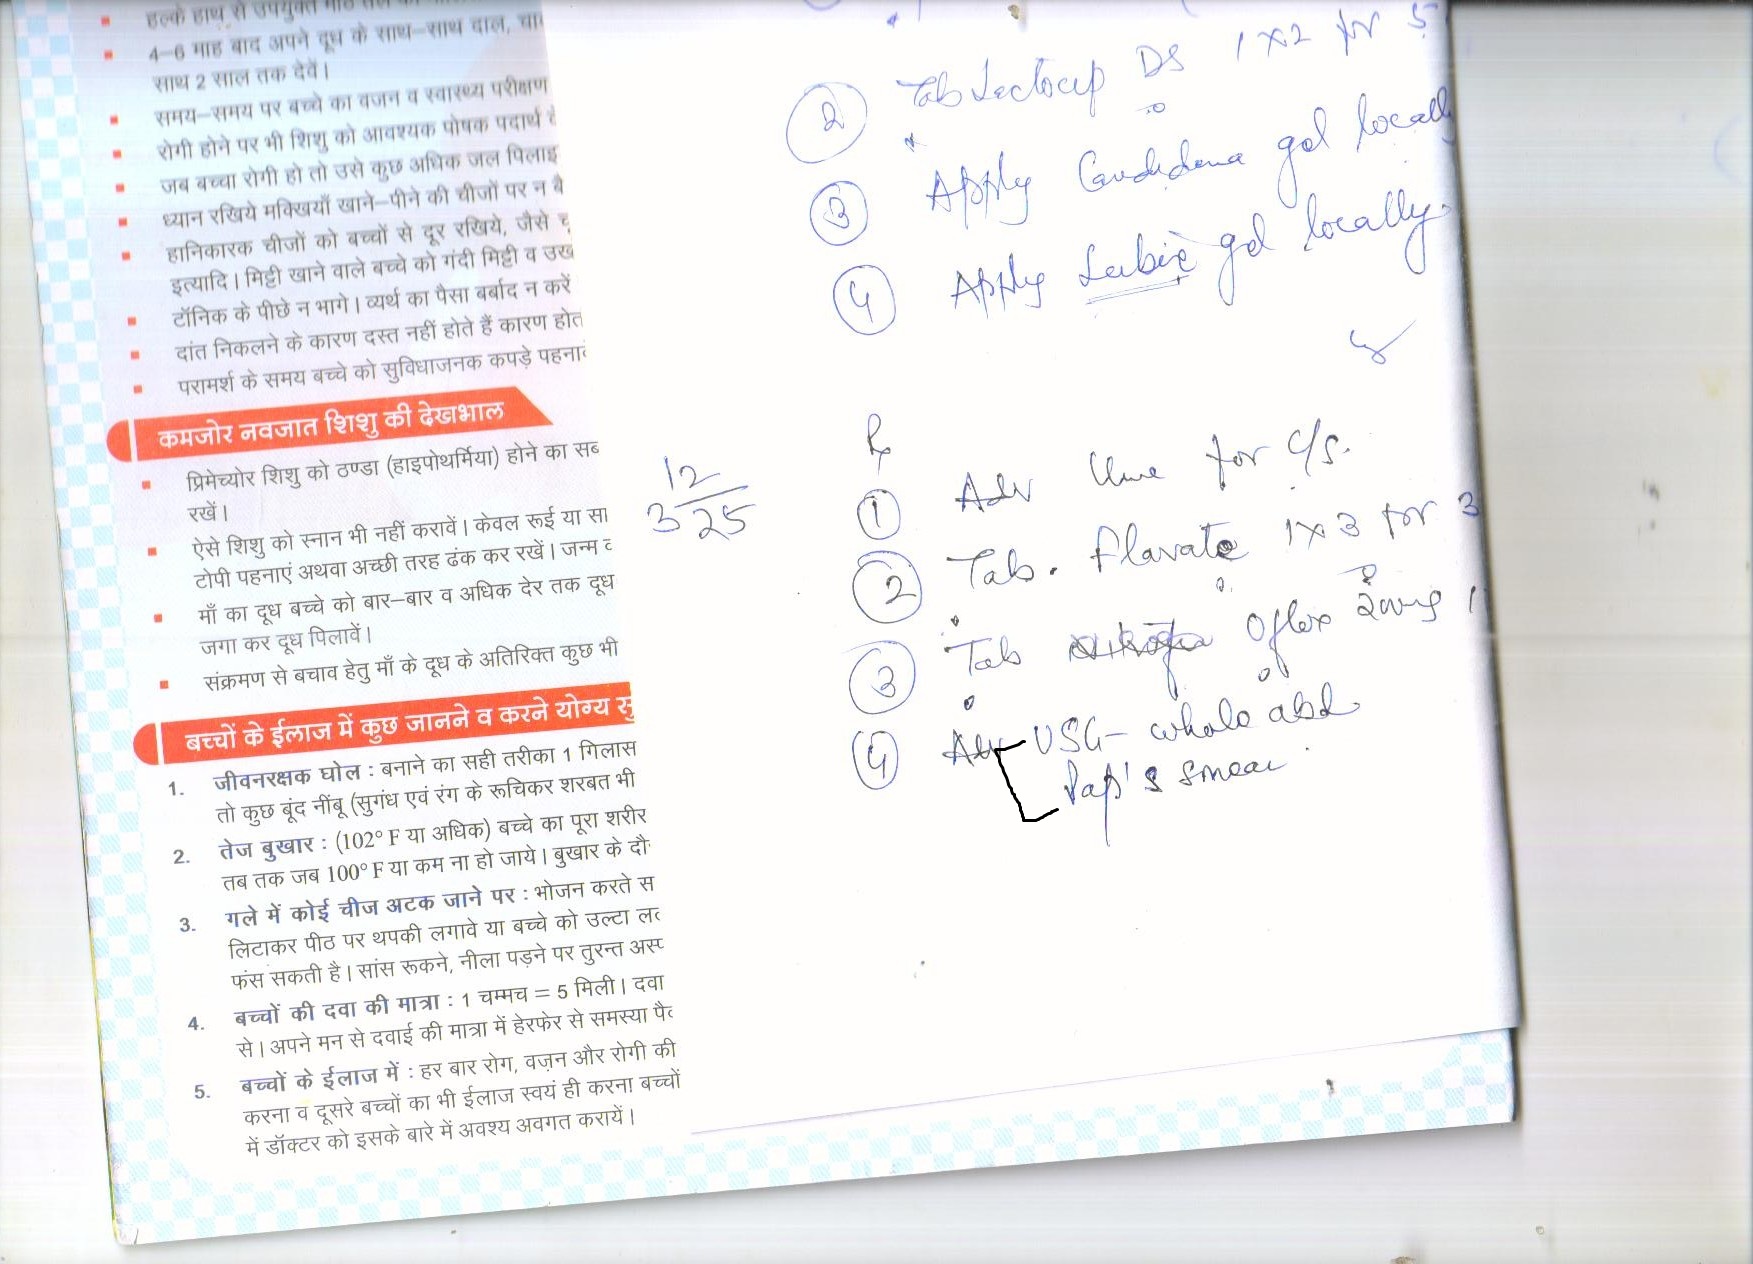 हल्के हाथ से उपयुक्त
4–6 माह बाद अपने दूध के साथ–साथ दाल,
साथ 2 साल तक देवें।
समय–समय पर बच्चे का वजन व स्वास्थ्य परीक्षण
रोगी होने पर भी शिशु को आवश्यक पोषक पदार्थ
जब बच्चा रोगी हो तो उसे कुछ अधिक जल पिलाइ
ध्यान रखिये मक्खियाँ खाने–पीने की चीजों पर न
हानिकारक चीजों को बच्चों से दूर रखिये, जैसे
इत्यादि। मिट्टी खाने वाले बच्चे को गंदी मिट्टी व
टॉनिक के पीछे न भागे। व्यर्थ का पैसा बर्बाद न करें
दांत निकलने के कारण दस्त नहीं होते हैं कारण होत
परामर्श के समय बच्चे को सुविधाजनक कपड़े
कमजोर नवजात शिशु की देखभाल
प्रिमेच्योर शिशु को ठण्डा (हाइपोथर्मिया) होने का सब
रखें।
ऐसे शिशु को स्नान भी नहीं करावें। केवल रूई या सा
टोपी पहनाएं अथवा अच्छी तरह ढंक कर रखें। जन्म
माँ का दूध बच्चे को बार–बार व अधिक देर तक दूध
जगा कर दूध पिलावें।
संक्रमण से बचाव हेतु माँ के दूध के अतिरिक्त कुछ भी
बच्चों के ईलाज में कुछ जानने व करने योग्य
1. जीवनरक्षक घोल : बनाने का सही तरीका 1 गिलास
तो कुछ बूंद नींबू (सुगंध एवं रंग के रूचिकर शरबत भी
2. तेज बुखार : (102° F या अधिक) बच्चे का पूरा शरीर
तब तक जब 100° F या कम ना हो जाये। बुखार के
3. गले में कोई चीज अटक जाने पर : भोजन करते स
लिटाकर पीठ पर थपकी लगावे या बच्चे को उल्टा
फंस सकती है। सांस रूकने, नीला पड़ने पर तुरन्त
4. बच्चों की दवा की मात्रा : 1 चम्मच = 5 मिली। दवा
से। अपने मन से दवाई की मात्रा में हेरफेर से समस्या
5. बच्चों के ईलाज में : हर बार रोग, वज़न और रोगी की
करना व दूसरे बच्चों का भी ईलाज स्वयं ही करना बच्चों
में डॉक्टर को इसके बारे में अवश्य अवगत करायें।
2 Tab DS 1x2 for 5
3 Apply gel locally
4 Apply gel locally
12
3 25
Rx
1 Adv for C/S.
2 Tab. Flavate 1x3 for 3
3 Tab Oflox 200mg 1
4 Adv USG- whole abd
Pap's smear